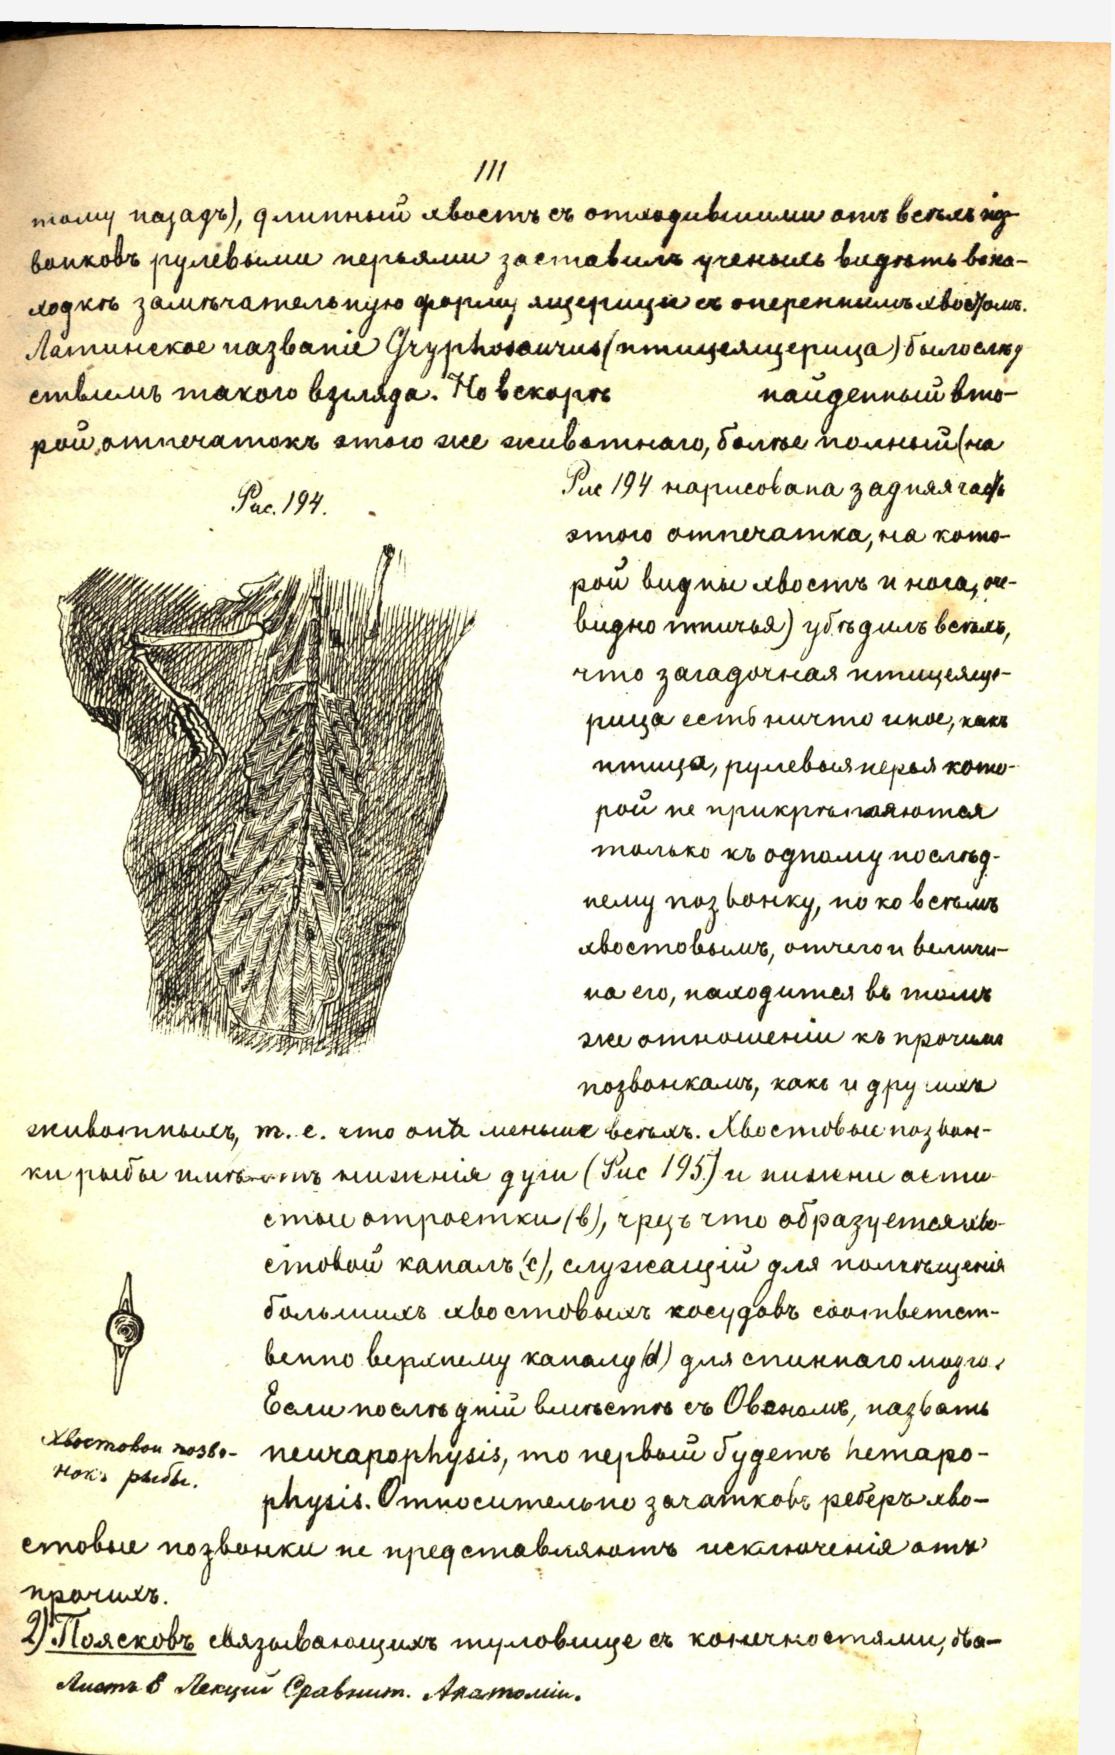 111
тому назадъ), длинный хвостъ съ отходившими отъ всѣхъ поз-
вонковъ рулевыми перьями заставилъ ученыхъ видѣть въ на-
ходкѣ замѣчательную форму ящерицы съ опереннымъ хвостомъ.
Латинское названіе Gryphosaurus (птицеящерица) было слѣд
ствіемъ такого взгляда. Но вскорѣ найденный вто-
рой отпечатокъ этого же животнаго, болѣе полный (на
Рис. 194.
Рис 194 нарисована задняя часть
этого отпечатка, на кото-
рой видны хвостъ и нога, оче-
видно птичья) убѣдилъ всѣхъ,
что загадочная птицеяще-
рица есть ничто иное, какъ
птица, рулевыя перья кото-
рой не прикрѣпляются
только къ одному послѣд-
нему позвонку, но ко всѣмъ
хвостовымъ, отчего и величи-
на его, находится въ томъ
же отношеніи къ прочимъ
позвонкамъ, какъ и другихъ
животныхъ, т. е. что онѣ меньше всѣхъ. Хвостовые позвон-
ки рыбы имѣютъ нижнія дуги (Рис 195.) и нижни ости-
стые отростки (b), чрезъ что образуется хво-
стовой каналъ (c), служащій для помѣщенія
большихъ хвостовыхъ сосудовъ соотвѣтст-
венно верхнему каналу (d) для спиннаго мозга.
Если послѣдній вмѣстѣ съ Овеномъ, назвать
neurapophysis, то первый будетъ hemapo-
physis. Относительно зачатковъ реберъ хво-
стовые позвонки не представляютъ исключенія отъ
прочихъ.
Хвостовой позво-
нокъ рыбы.
2) Поясковъ связывающихъ туловище съ конечностями, два-
Листъ 8 Лекцій Сравнит. Анатоміи.